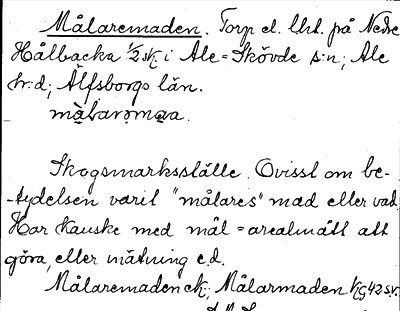 Målaremaden. Torp el. lht. på Nedre
Hålbacka 1/2 sk. i Ale-Skövde s:n; Ale
hr:d; Älfsborgs län.
Skogsmarksställe. Ovisst om be-
-tydelsen varit "målares" mad eller vad.
Har kanske med mål = arealmått att
göra, eller mätning e.d.
Målaremaden ek.; Målarmaden